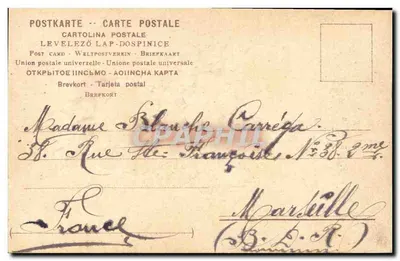 POSTKARTE -- CARTE POSTALE
CARTOLINA POSTALE
LEVELEZŐ LAP-DOSPINICE
POST CARD - WELTPOSTVEREIN - BRIEFKAART
Union postale universelle - Unione postale universale
ОТКРЫТОЕ ПИСЬМО - ДОПИСНА КАРТА
Brevkort - Tarjeta postal
BREFKORT
Madame Blanche Carréga
38. Rue Ste Françoise N° 38. 2me.
France
Marseille
(B. D. R)